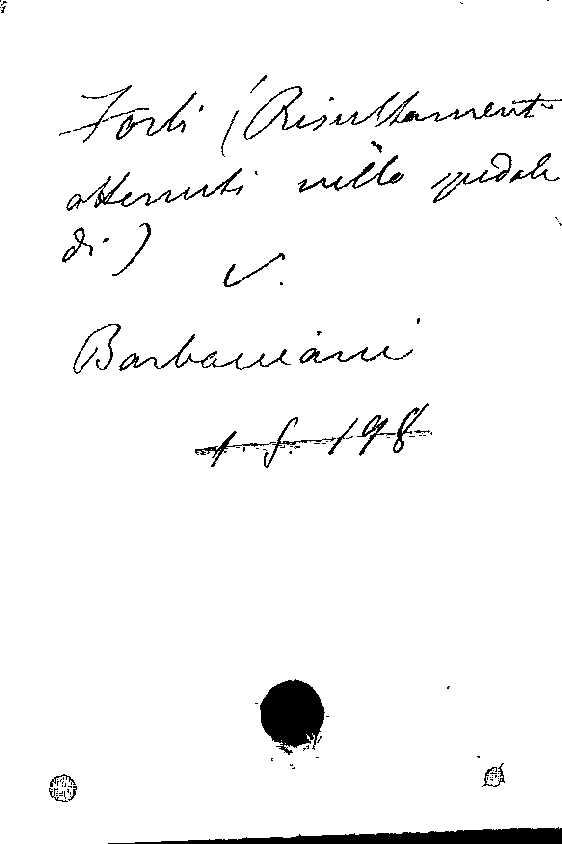 Forlì (Risultamenti
ottenuti nello spedale
di)
V.
Barbaciani
1. S. 198